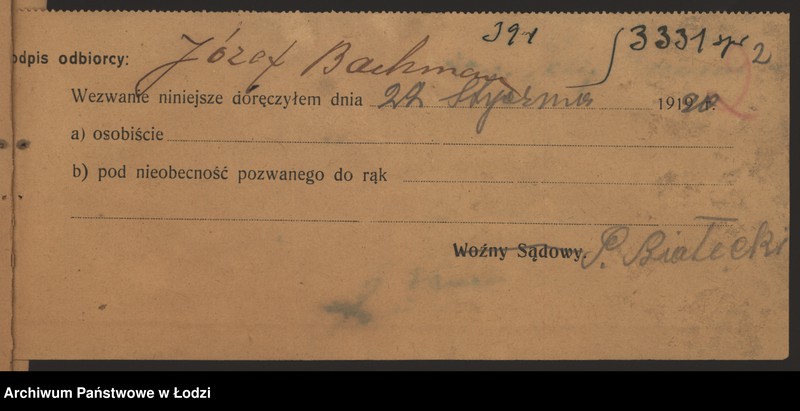 391 3331 2
odpis odbiorcy: Józef Bachman
Wezwanie niniejsze doręczyłem dnia 22 Stycznia 1920 r.
a) osobiście
b) pod nieobecność pozwanego do rąk
Woźny Sądowy. P. Białecki
Archiwum Państwowe w Łodzi